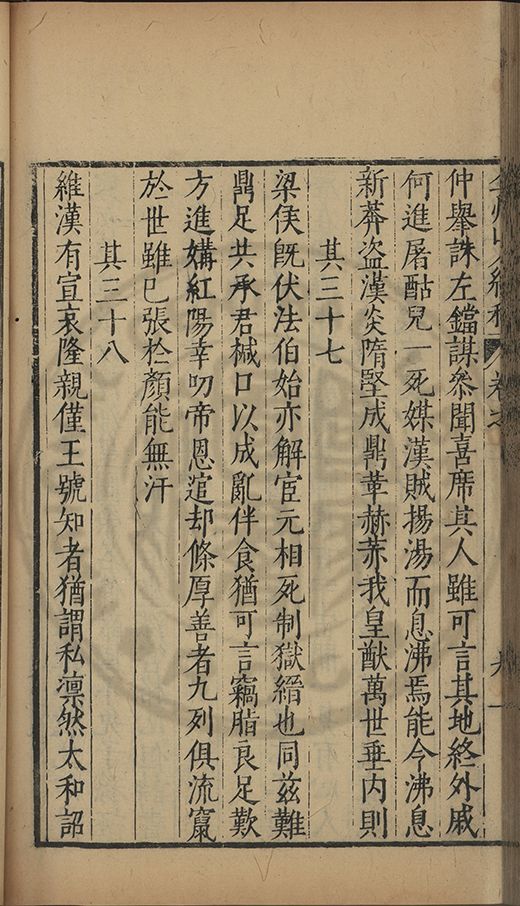 仲舉誅左鐺謀叅聞喜席其人雖可言其地終外戚
何進屠酤兒一死媒漢賊揚湯而息沸焉能今沸息
新莽盜漢炎隋堅成鼎革赫赫我皇猷萬世垂内則
其三十七
梁侯旣伏法伯始亦解宦元相死制獄縉也同兹難
鼎足共承君椷口以成亂伴食猶可言竊脂良足歎
方進媾紅陽幸叨帝恩逭却條厚善者九列俱流竄
於世雖巳張於顔能無汗
其三十八
維漢有宣哀隆親僅王號知者猶謂私凛然太和詔